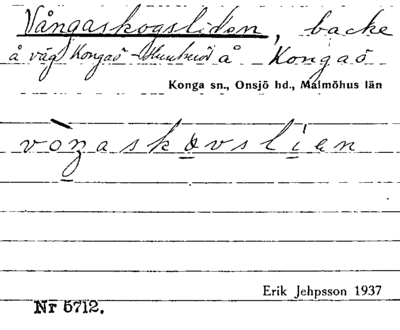 Vångaskogsliden, backe
å väg Kongaö - å Kongaö
Konga sn., Onsjö hd., Malmöhus län
vòŋaskovslien
Erik Jehpsson 1937
Nr 5712.